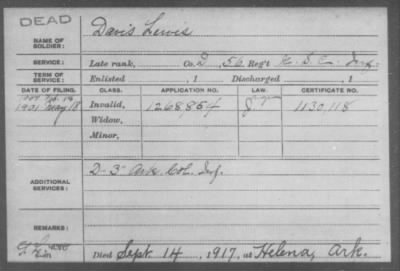 DEAD
NAME OF SOLDIER: Davis Lewis
SERVICE: Late rank, Co. D, 56 Reg't U. S. C. Inf.
TERM OF SERVICE: Enlisted , 1 Discharged , 1
DATE OF FILING. CLASS. APPLICATION NO. LAW. CERTIFICATE NO.
1901 May 18 Invalid, 1268,854 1130,118
Widow,
Minor,
ADDITIONAL SERVICES: D- 3" Ark. Col. Inf.
REMARKS:
Died Sept. 14, 1917, at Helena, Ark.